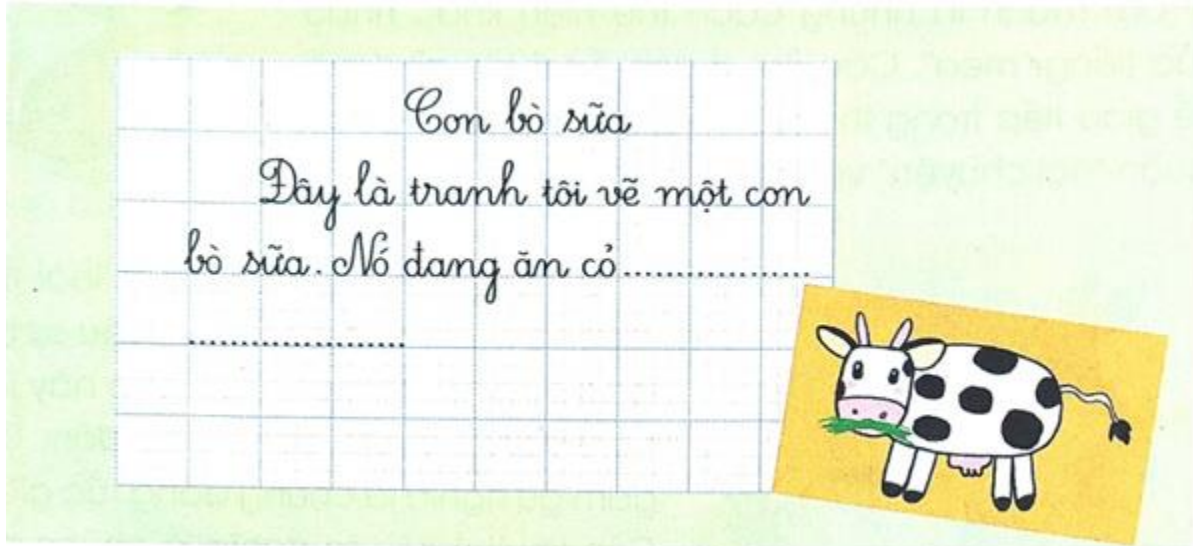 Con bò sữa
Đây là tranh tôi vẽ một con
bò sữa. Nó đang ăn cỏ....................
........................